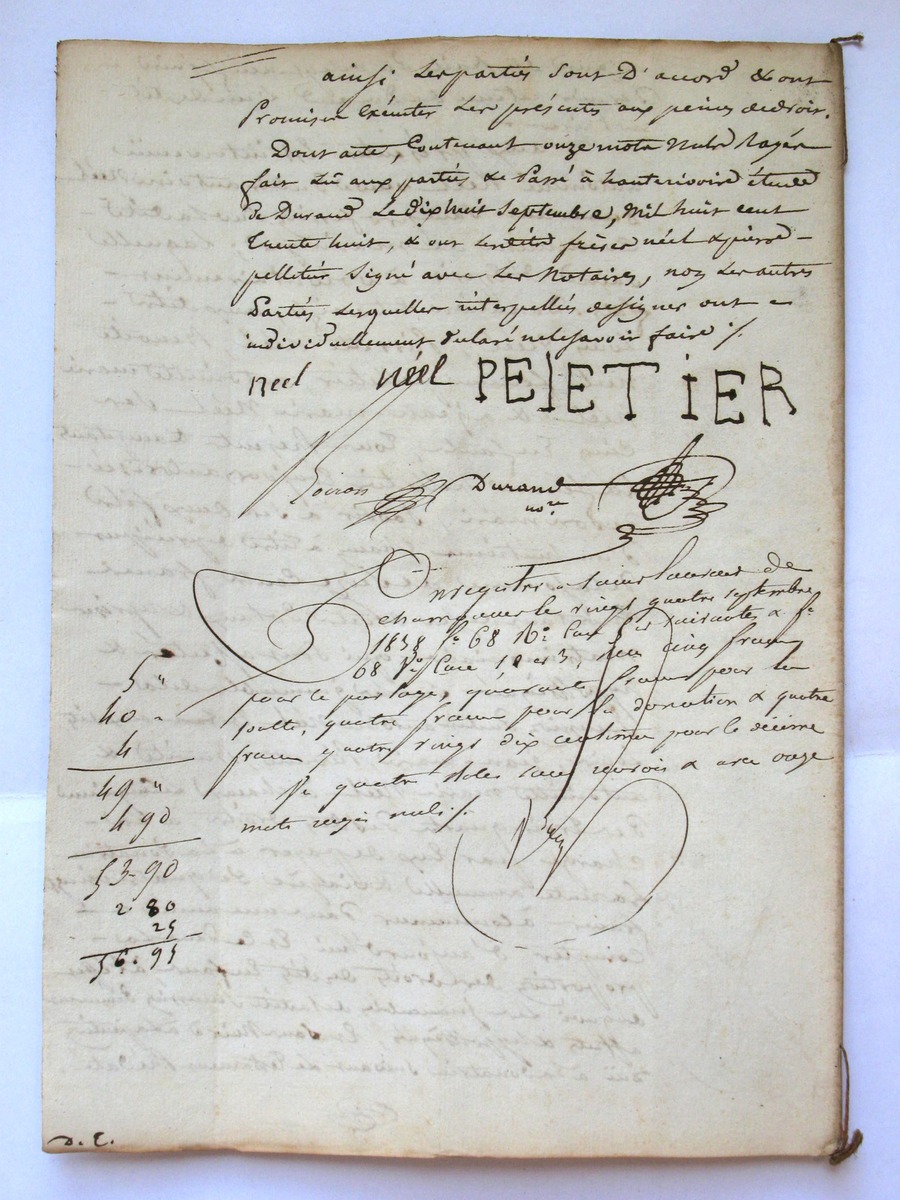 ainsi les parties sont D'accord & ont
Promis d'Exécuter les présentes aux peines de droit.
Dont acte, Contenant onze mots Nuls Rayés
fait Lû aux parties & Passé à hauterivoire étude
de Durand Le dixhuit Septembre, Mil huit cent
trente huit, & ont lesdits frères néel & pierre
pelletier Signé avec les Notaires, non les autres
Parties lesquelles interpellées de signer ont
individuellement déclaré ne le savoir faire ./.
neel néel PElETiER
Coiron Durand
nore
Enregistré à Saint Laurent de
chamousset le vingt quatre septembre
1838 fo 68 Ro Case 5 et suivantes & fo
68 Vo Case 1 2 et 3, reçu cinq francs
pour le partage, quarante francs pour la
soulte, quatre francs pour la donation & quatre
francs quatre vingt dix centimes pour le décime
quatre rôles sans renvois & avec onze
mots rayés nuls ./.
5 "
40 "
4
49 "
4 90
53-90
2 80
25
56.95
D. C.